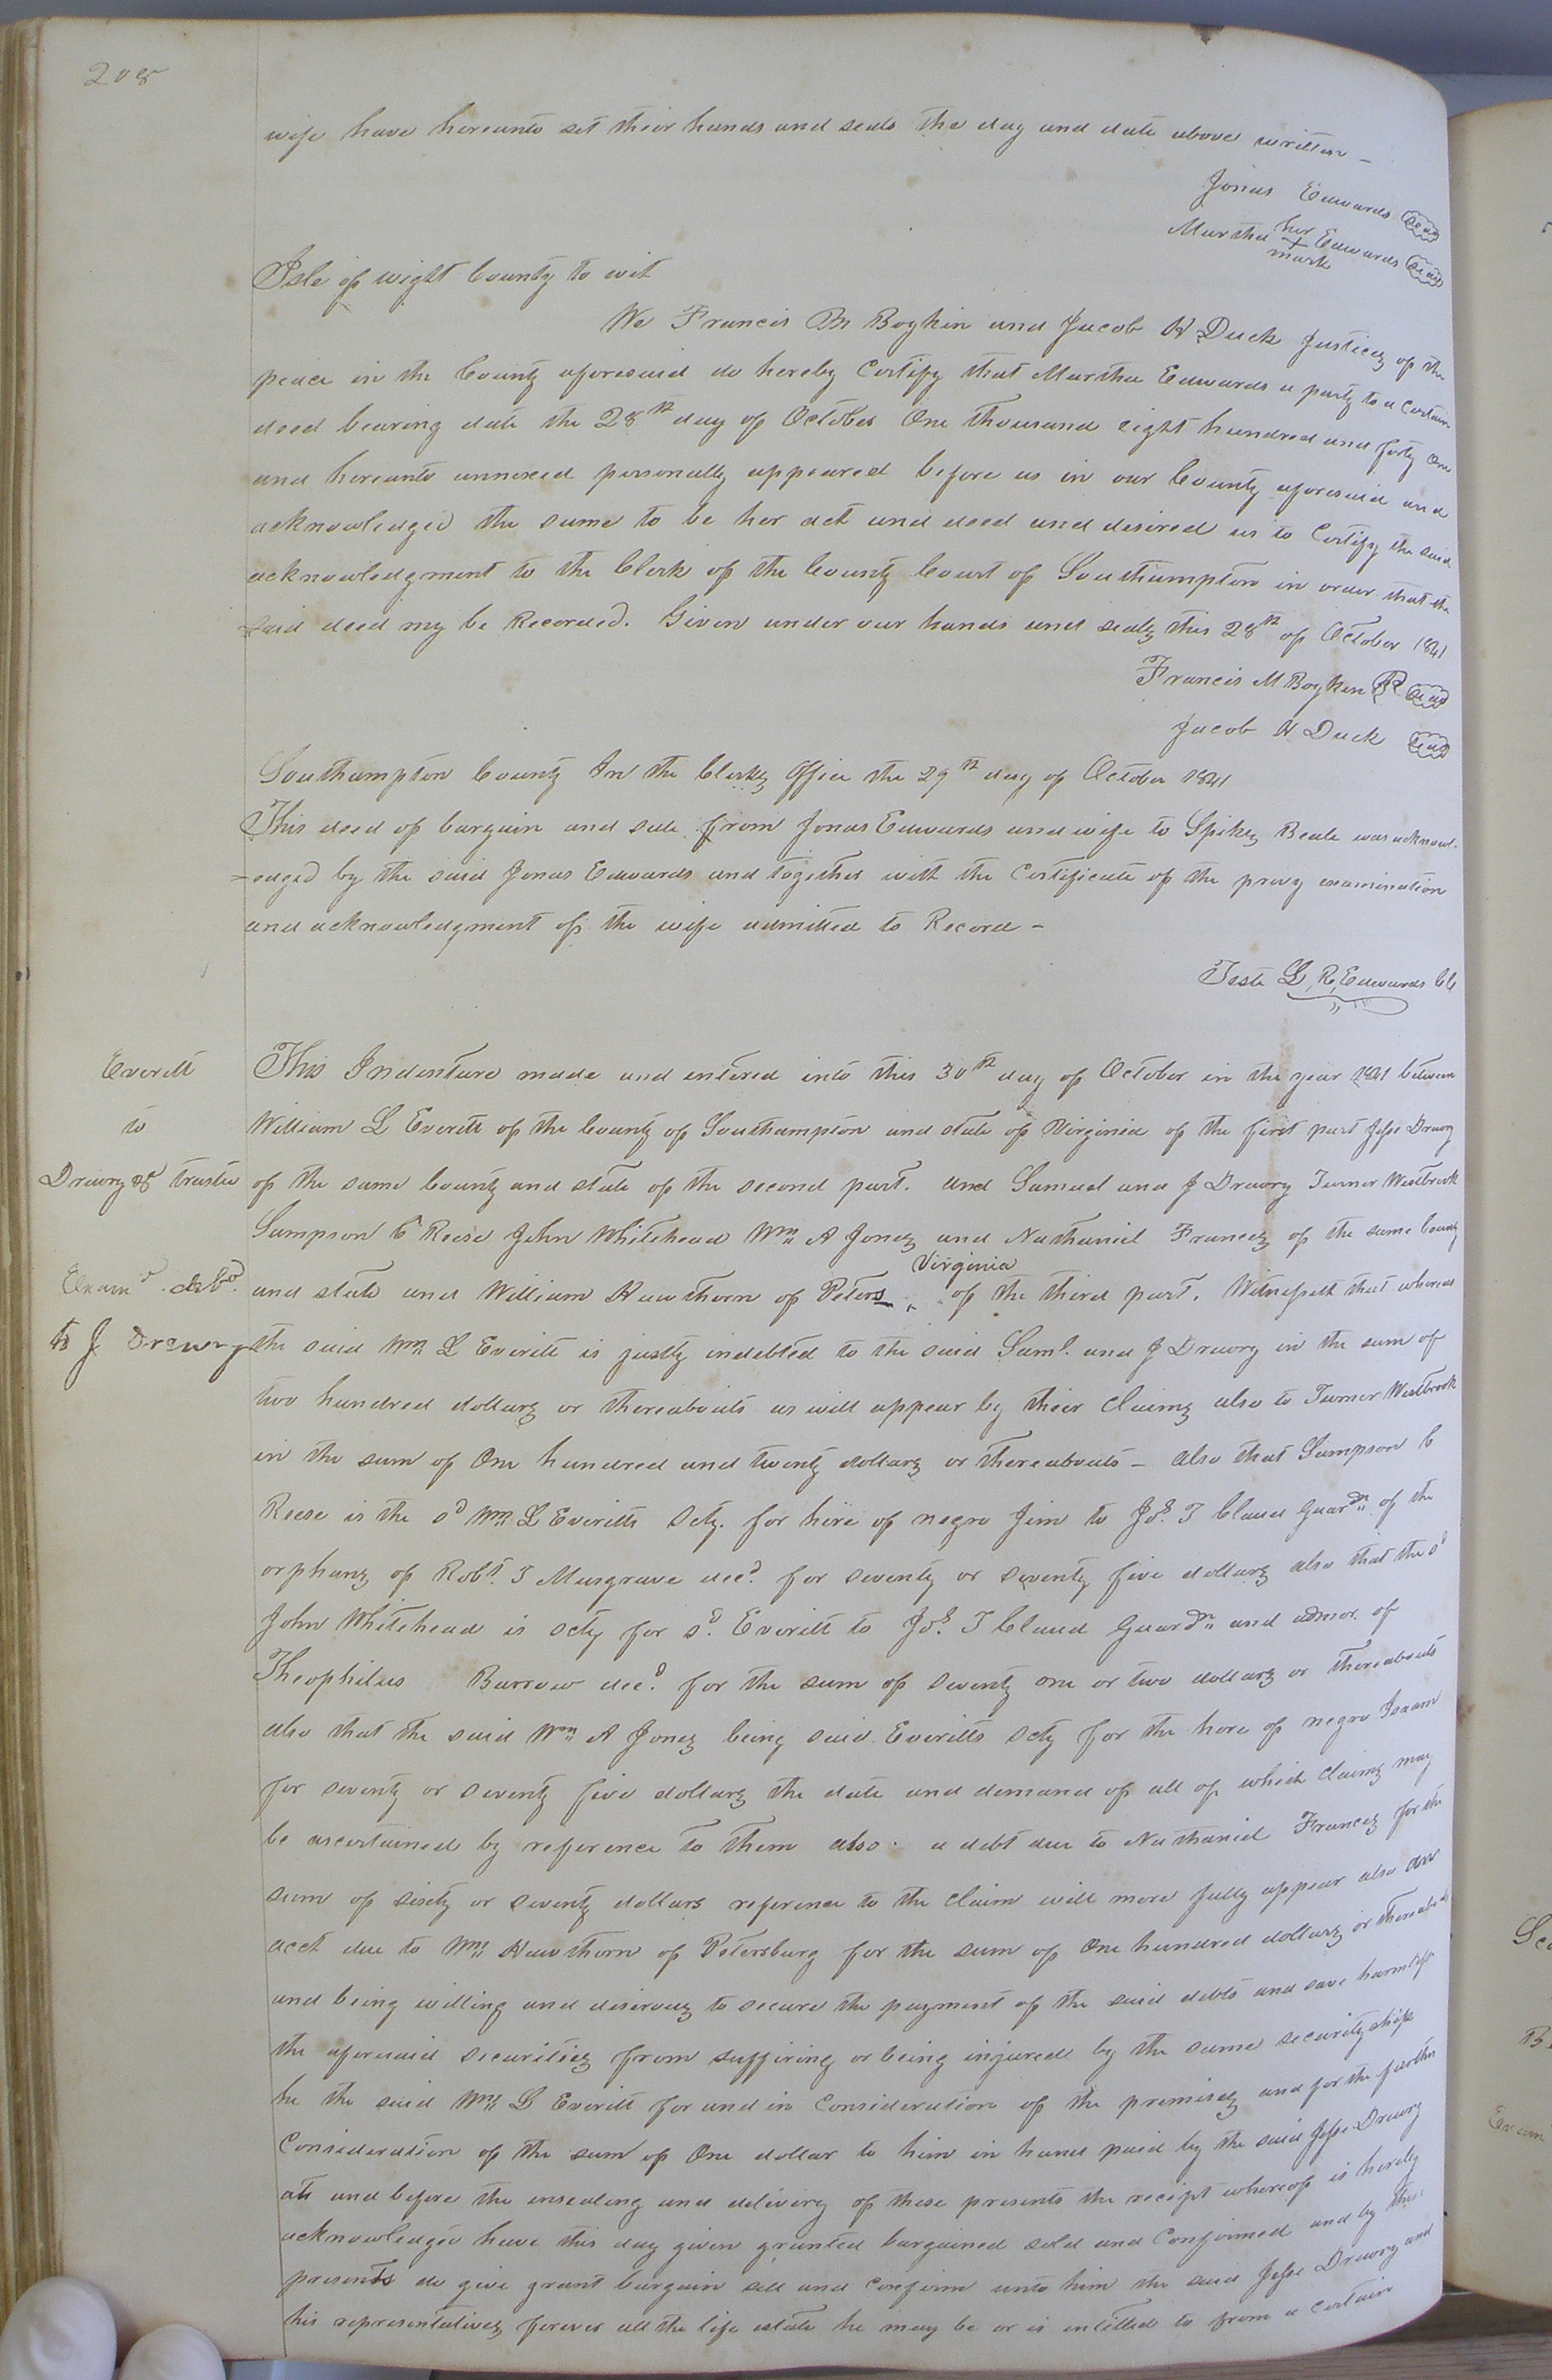 208
wife have hereunto set their hands and seals the day and date above written –
Jonas Edwards seal
her
Martha + Edwards seal
mark
Isle of wight County to wit
We Francis M Boykin and Jacob H Duck Justices of the
peace in the County aforesaid do hereby Certify that Martha Edwards a party to a Certain
deed bearing date the 28th day of October One thousand eight hundred and forty One
and hereunto annexed personally appeared before us in our County aforesaid and
acknowledged the same to be her act and deed and desired us to Certify the said
acknowledgment to the Clerk of the County Court of Southampton in order that the
said deed my be Recorded. Given under our hands and seals this 28th of October 1841
Francis M Boykin seal
Jacob H Duck seal
Southampton County In the Clerks Office the 29th day of October 1841
This deed of bargain and sale from Jonas Edwards and wife to Spikes Beale was acknowl-
=edged by the said Jonas Edwards and together with the Certificate of the privy examination
and acknowledgment of the wife admitted to Record –
Teste L, R, Edwards CC
Everett
to
Drewry &c trustee
Exam.d & dd.
to J Drewry
This Indenture made and entered into this 30th day of October in the year 1841 between
William L Everett of the County of Southampton and state of Virginia of the first part Jesse Drewry
of the same County and state of the second part. and Samuel and J Drewry Turner Westbrook
Sampson C Reese John Whitehead Wm A Jones and Nathaniel Frances of the same County
Virginia
and state and William Hawthorn of Peters „ of the third part. Witnesseth that whereas
the said Wm L Everett is justly indebted to the said Saml. and J Drewry in the sum of
two hundred dollars or thereabouts as will appear by their Claims also to Turner Westbrook
in the sum of One hundred and twenty dollars or thereabouts – also that Sampson C
Reese is the sd Wm L Everitts Scty. for hire of negro Jim to Jos. T Claud Guardn. of the
orphans of Robt. T Musgrave decd. for seventy or seventy five dollars also that the sd
John Whitehead is scty for sd. Everitt to Jos. T Claud Guardn and admor. of
Theophilus Barrow decd. for the sum of seventy one or two dollars or thereabouts
also that the said Wm A Jones being said Everitts Scty for the hire of negro Isaam
for seventy or seventy five dollars the date and demand of all of which claims may
be ascertained by reference to them also a debt due to Nathaniel Frances for the
sum of sixty or seventy dollars reference to the Claim will more fully appear also an
acct due to Wm Hawthorn of Petersburg for the sum of One hundred dollars or thereabouts
and being willing and desirous to secure the payment of the said debts and save harmless
the aforesaid securities from suffiring or being injured by the same securityship
he the said Wm L Everitt for and in Consideration of the premises and for the further
Consideration of the sum of One dollar to him in hand paid by the said Jesse Drewry
at and before the ensealing and delivery of these presents the receipt whereof is hereby
acknowledged have this day given granted bargained sold and Confirmed and by these
presents do give grant bargain sell and confirm unto him the said Jesse Drewry and
his representatives forever all the life estate he may be or is intitled to from a certain